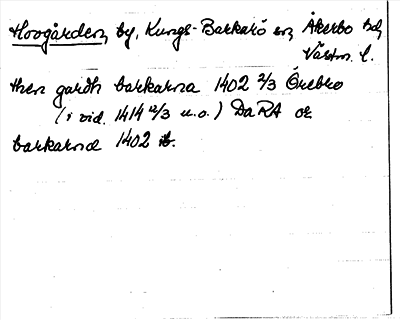 Hovgården, by, Kungs-Barkarö sn, Åkerbo hd,
Västm. l.
then gardh barkarna 1402 2/3 Örebro
(i vid. 1414 12/3 u.o.) DaRA or
barkarna 1402 ib.